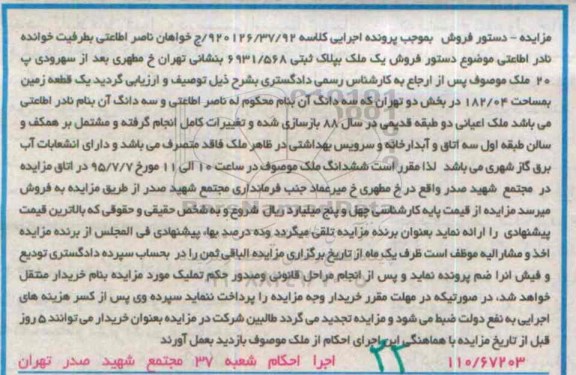 مزایده - دستور فروش بموجب پرونده اجرایی کلاسه ۹۲۰۱۲۶/۳۷/۹۲/ج خواهان ناصر اطاعتی بطرفیت خوانده
نادر اطاعتی موضوع دستور فروش یک ملک بپلاک ثبتی ۶۹۳۱/۵۶۸ بنشانی تهران خ مطهری بعد از سهروردی پ
۲۰ ملک موصوف پس از ارجاع به کارشناس رسمی دادگستری بشرح ذیل توصیف و ارزیابی گردید یک قطعه زمین
بمساحت ۱۸۲/۰۴ در بخش دو تهران که سه دانگ آن بنام محکوم له ناصر اطاعتی و سه دانگ آن بنام نادر اطاعتی
می باشد ملک اعیانی دو طبقه قدیمی در سال ۸۸ بازسازی شده و تغییرات کامل انجام گرفته و مشتمل بر همکف و
سالن طبقه اول سه اتاق و آبدارخانه و سرویس بهداشتی در ظاهر ملک فاقد متصرف می باشد و دارای انشعابات آب
برق گاز شهری می باشد لذا مقرر است ششدانگ ملک موصوف در ساعت ۱۰ الی ۱۱ مورخ ۹۵/۷/۷ در اتاق مزایده
در مجتمع شهید صدر واقع در خ مطهری خ میرعماد جنب فرمانداری مجتمع شهید صدر از طریق مزایده به فروش
میرسد مزایده از قیمت پایه کارشناسی چهل و پنج میلیارد ریال شروع و به شخص حقیقی و حقوقی که بالاترین قیمت
پیشنهادی را ارائه نماید بعنوان برنده مزایده تلقی میگردد وده درصد بها، پیشنهادی فی المجلس از برنده مزایده
اخذ و مشارالیه موظف است ظرف یک ماه از تاریخ برگزاری مزایده الباقی ثمن را در بحساب سپرده دادگستری تودیع
و فیش انرا ضم پرونده نماید و پس از انجام مراحل قانونی وصدور حکم تملیک مورد مزایده بنام خریدار منتقل
خواهد شد، در صورتیکه در مهلت مقرر خریدار وجه مزایده را پرداخت ننماید سپرده وی پس از کسر هزینه های
اجرایی به نفع دولت ضبط می شود و مزایده تجدید می گردد طالبین شرکت در مزایده بعنوان خریدار می توانند ۵ روز
قبل از تاریخ مزایده با هماهنگی این اجرای احکام از ملک موصوف بازدید بعمل آورند
۱۱۰/۶۷۲۰۳ ۲۲ اجرا احکام شعبه ۳۷ مجتمع شهید صدر تهران